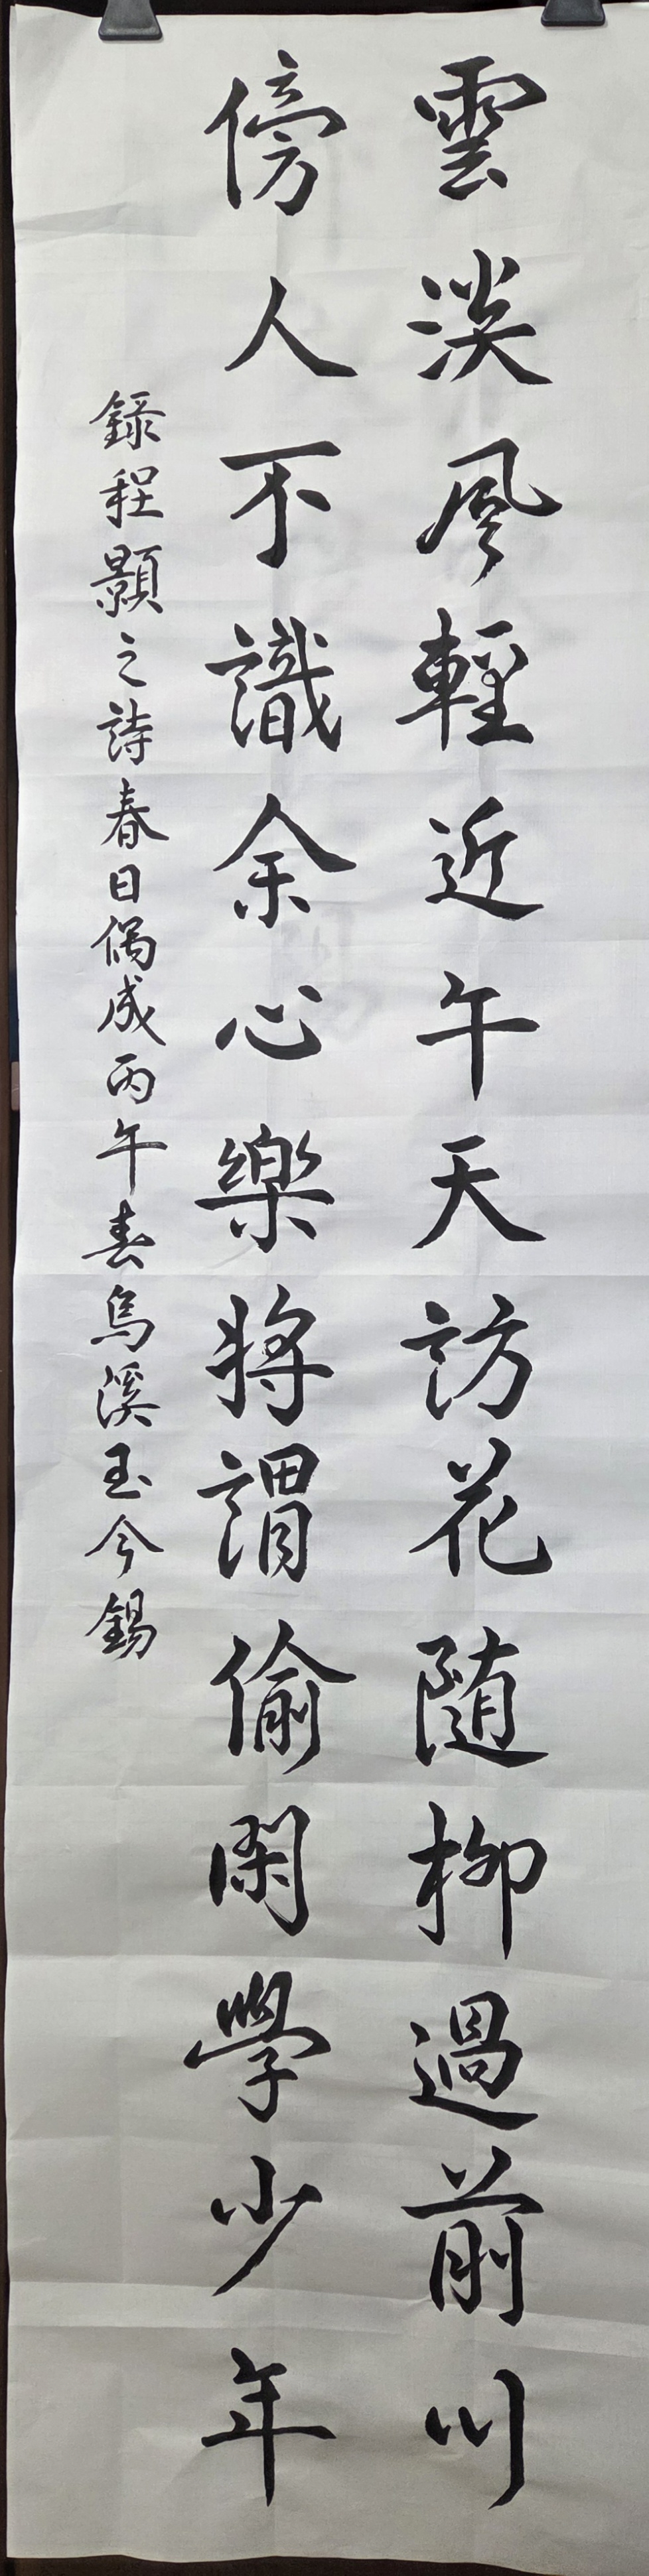 雲淡風輕近午天訪花随柳過前川
傍人不識余心樂將謂偷閑學少年
錄程顥之詩春日偶成丙午春烏溪玉今錫